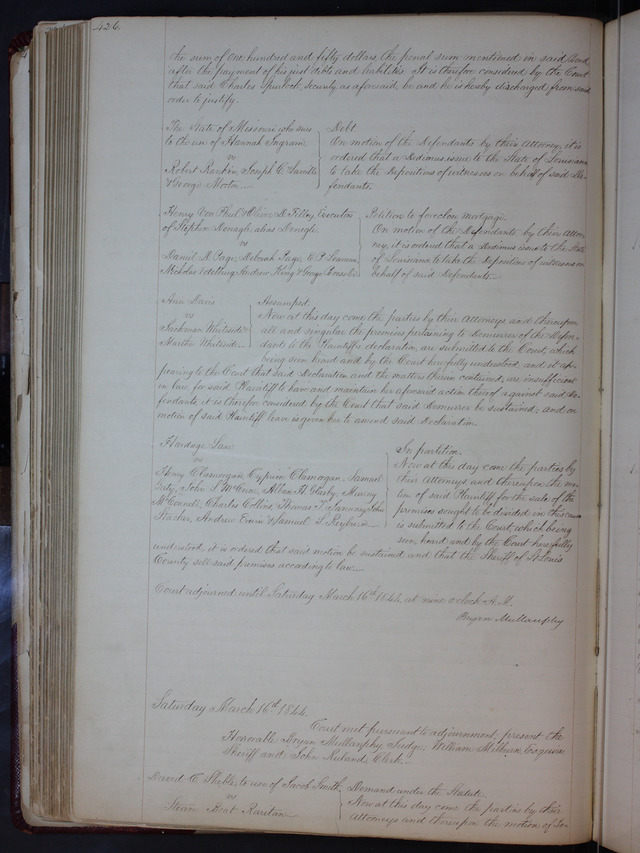 426.
the sum of one hundred and fifty dollars, the penal sum mentioned in said Bond
after the payment of his just debts and liabilities. It is therefore considered by the Court
that said Charles Spurlock, Security as aforesaid, be and he is hereby discharged from said
order to justify.
The State of Missouri who sues
to the use of Hannah Ingram
vs
Robert Rankin, Joseph C.
& George Morton
Debt
On motion of the Defendants by their Attorney, it is
ordered that a Dedimus issue to the State of Louisiana
to take the Depositions of witnesses on behalf of said De-
fendants.
Henry Von Phul & Oliver D. Filley Executors
of Stephen Monagh alias Donegh
vs
Daniel D. Page, Deborah Page, P.
Nicholas Andrew King & George
Petition to foreclose mortgage.
On motion of the Defendants by their Attor-
ney, it is ordered that a Dedimus issue to the State
of Louisiana to take the Deposition of witnesses on
behalf of said Defendants.
Ann Davis
vs
Jackman Whiteside
Martha Whiteside
Assumpsit
Now at this day come the parties by their Attorneys and thereupon
all and singular the premises pertaining to Demurrer of the Defen-
dant to the Plaintiff's declaration, are submitted to the Court, which
being seen heard and by the Court here fully understood, and it ap-
pearing to the Court that said Declaration and the matters therein contained, are insufficient
in law, for said Plaintiff to have and maintain her aforesaid action thereof against said De-
fendants, it is therefore considered by the Court that said Demurrer be sustained, and on
motion of said Plaintiff leave is given her to amend said Declaration.
Hardage Lane
vs
Henry Clamorgan, Cyprian Clamorgan, Samuel
Gaty, John S. McCune, Allen H. Glasby, Murray
McConnell, Charles Collins, Thomas T. January, John
Stacker, Andrew Erwin & Samuel L.
In partition.
Now at this day come the parties by
their Attorneys and thereupon the mo-
tion of said Plaintiff for the sale of the
premises sought to be divided in this cause
is submitted to the Court, which being
seen, heard and by the Court here fully
understood, it is ordered that said motion be sustained and that the Sheriff of St. Louis
County sell said premises according to law.
Court adjourned until Saturday March 16th 1844, at nine o'clock A.M.
Bryan Mullanphy
Saturday March 16th 1844.
Court met pursuant to adjournment, present the
Honorable Bryan Mullanphy Judge, William Milburn Esquire
Sheriff and John Ruland Clerk.
David C. to use of Jacob Smith
vs
Steam Boat Raritan
Demand under the Statute
Now at this day come the parties by their
Attorneys and thereupon the motion of De-